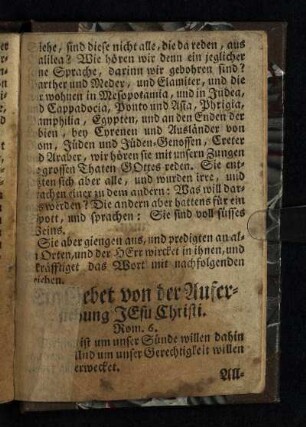 ehe, sind diese nicht alle, die da reden, aus
alilea? Wie hören wir denn ein jeglicher
ne Sprache, darinn wir gebohren sind?
arther und Meder, und Elamiter, und die
r wohnen in Mesopotamia, und in Judea,
nd Cappadocia, Ponto und Asia, Phrigia,
amphilia, Egypten, und an den Enden der
bien, bey Cyrenen und Ausländer von
om, Jüden und Jüden-Genossen, Creter
d Araber, wir hören sie mit unsern Zungen
grossen Thaten GOttes reden. Sie ent-
tzten sich aber alle, und wurden irre, und
rachen einer zu dem andern: Was will dar-
s werden? Die andern aber hattens für ein
pott, und sprachen: Sie sind voll süsses
eins.
Sie aber giengen aus, und predigten an al-
Orten, und der HErr wircket in ihnen, und
kräfftiget das Wort mit nachfolgenden
ichen.
Gebet von der Aufer-
hung JEsu Christi.
Rom. 6.
ist um unser Sünde willen dahin
und um unser Gerechtigkeit willen
erwecket.
All-